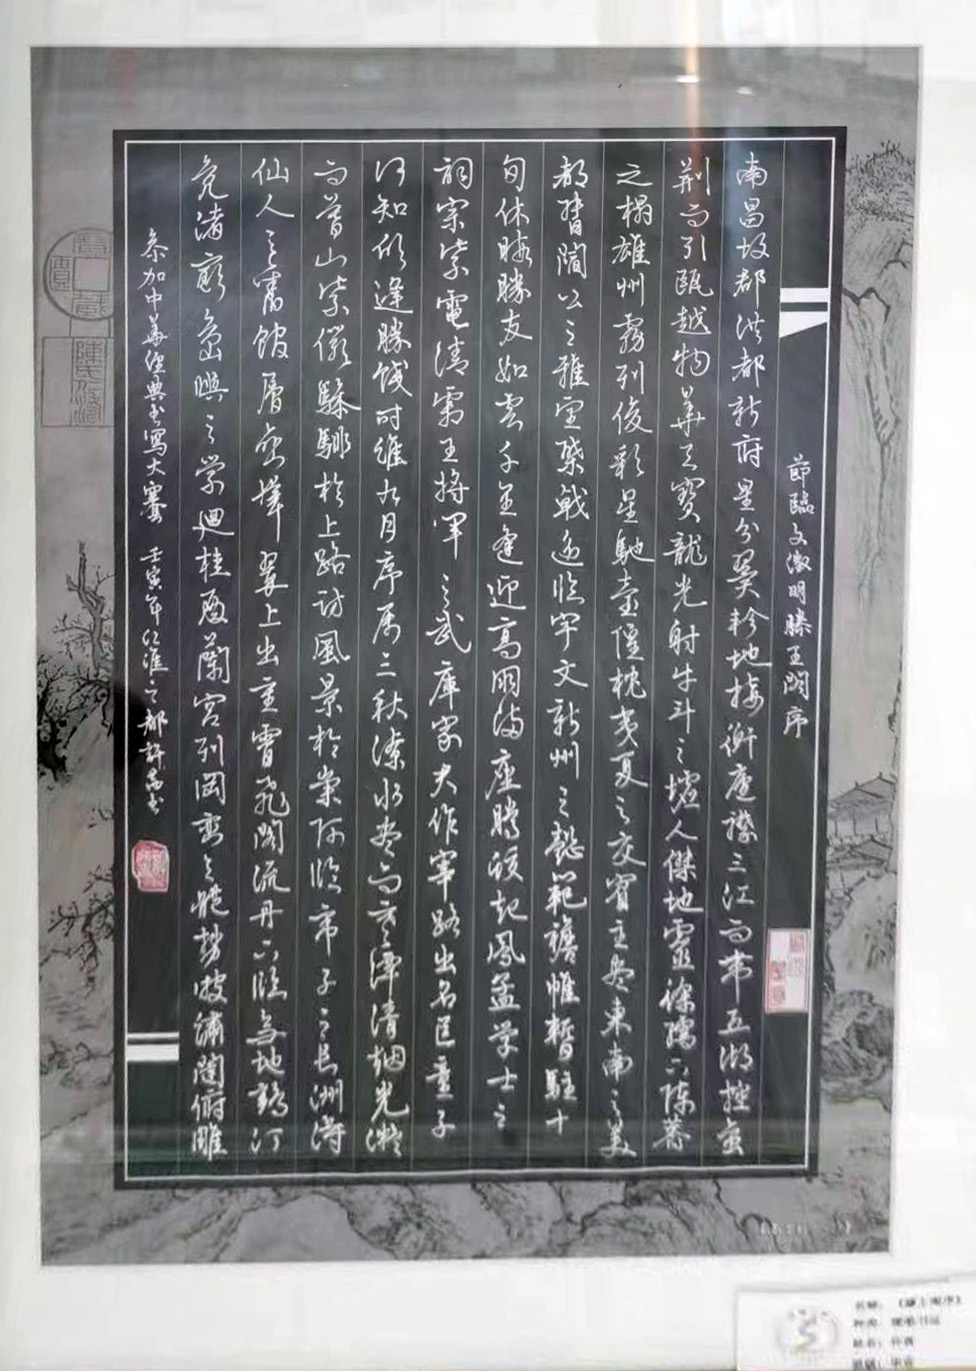 節臨文徵明滕王閣序
南昌故郡洪都新府星分翼軫地接衡廬襟三江而帶五湖控蛮
荆而引甌越物華天寶龍光射牛斗之墟人傑地靈徐孺下陳蕃
之榻雄州霧列俊彩星馳臺隍枕夷夏之交賓主尽東南之美
都督閻公之雅望棨戟遥臨宇文新州之懿範襜帷暫駐十
旬休暇勝友如雲千里逢迎高朋満座騰蛟起鳳孟学士之
詞宗紫電清霜王將軍之武庫家大作宰路出名區童子
何知躬逢勝餞时維九月序属三秋潦水尽而寒潭清烟光凝
而暮山紫儼驂騑於上路訪風景於崇阿臨帝子之長洲得
仙人之舊館層巒聳翠上出重霄飛閣流丹下臨無地鶴汀
凫渚窮島嶼之縈迴桂殿蘭宫列岡巒之體勢披繡闥俯雕
參加中華經典书寫大賽 壬寅年仁淮之都許书
名称：《滕王阁序》
种类：硬笔书法
姓名：许